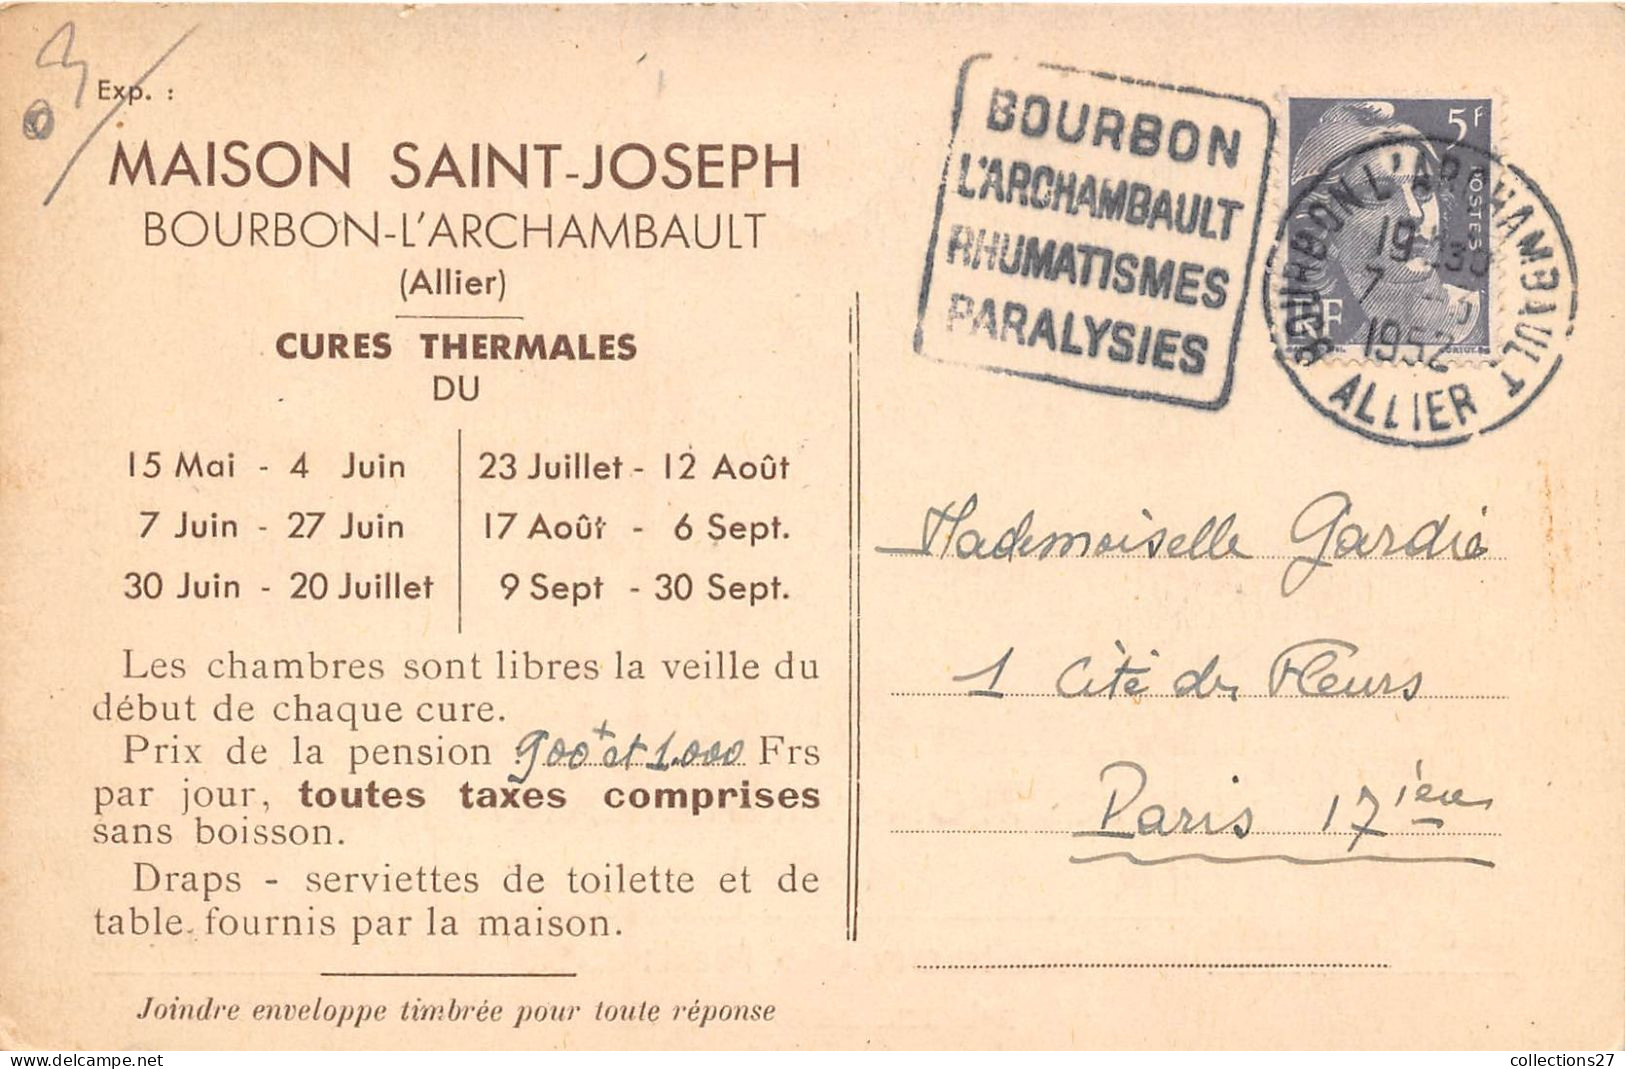 Exp. :
MAISON SAINT-JOSEPH
BOURBON-L'ARCHAMBAULT
(Allier)
CURES THERMALES
DU
15 Mai - 4 Juin
7 Juin - 27 Juin
30 Juin - 20 Juillet
23 Juillet - 12 Août
17 Août - 6 Sept.
9 Sept - 30 Sept.
Les chambres sont libres la veille du
début de chaque cure.
Prix de la pension 900+ et 1.000 Frs
par jour, toutes taxes comprises
sans boisson.
Draps - serviettes de toilette et de
table fournis par la maison.
Joindre enveloppe timbrée pour toute réponse
BOURBON
L'ARCHAMBAULT
RHUMATISMES
PARALYSIES
5F
POSTES
RF
BOURBON L'ARCHAMBAULT
19 30
7
1952
ALLIER
Mademoiselle Gardié
1 Cité des Fleurs
Paris 17ième
collections27